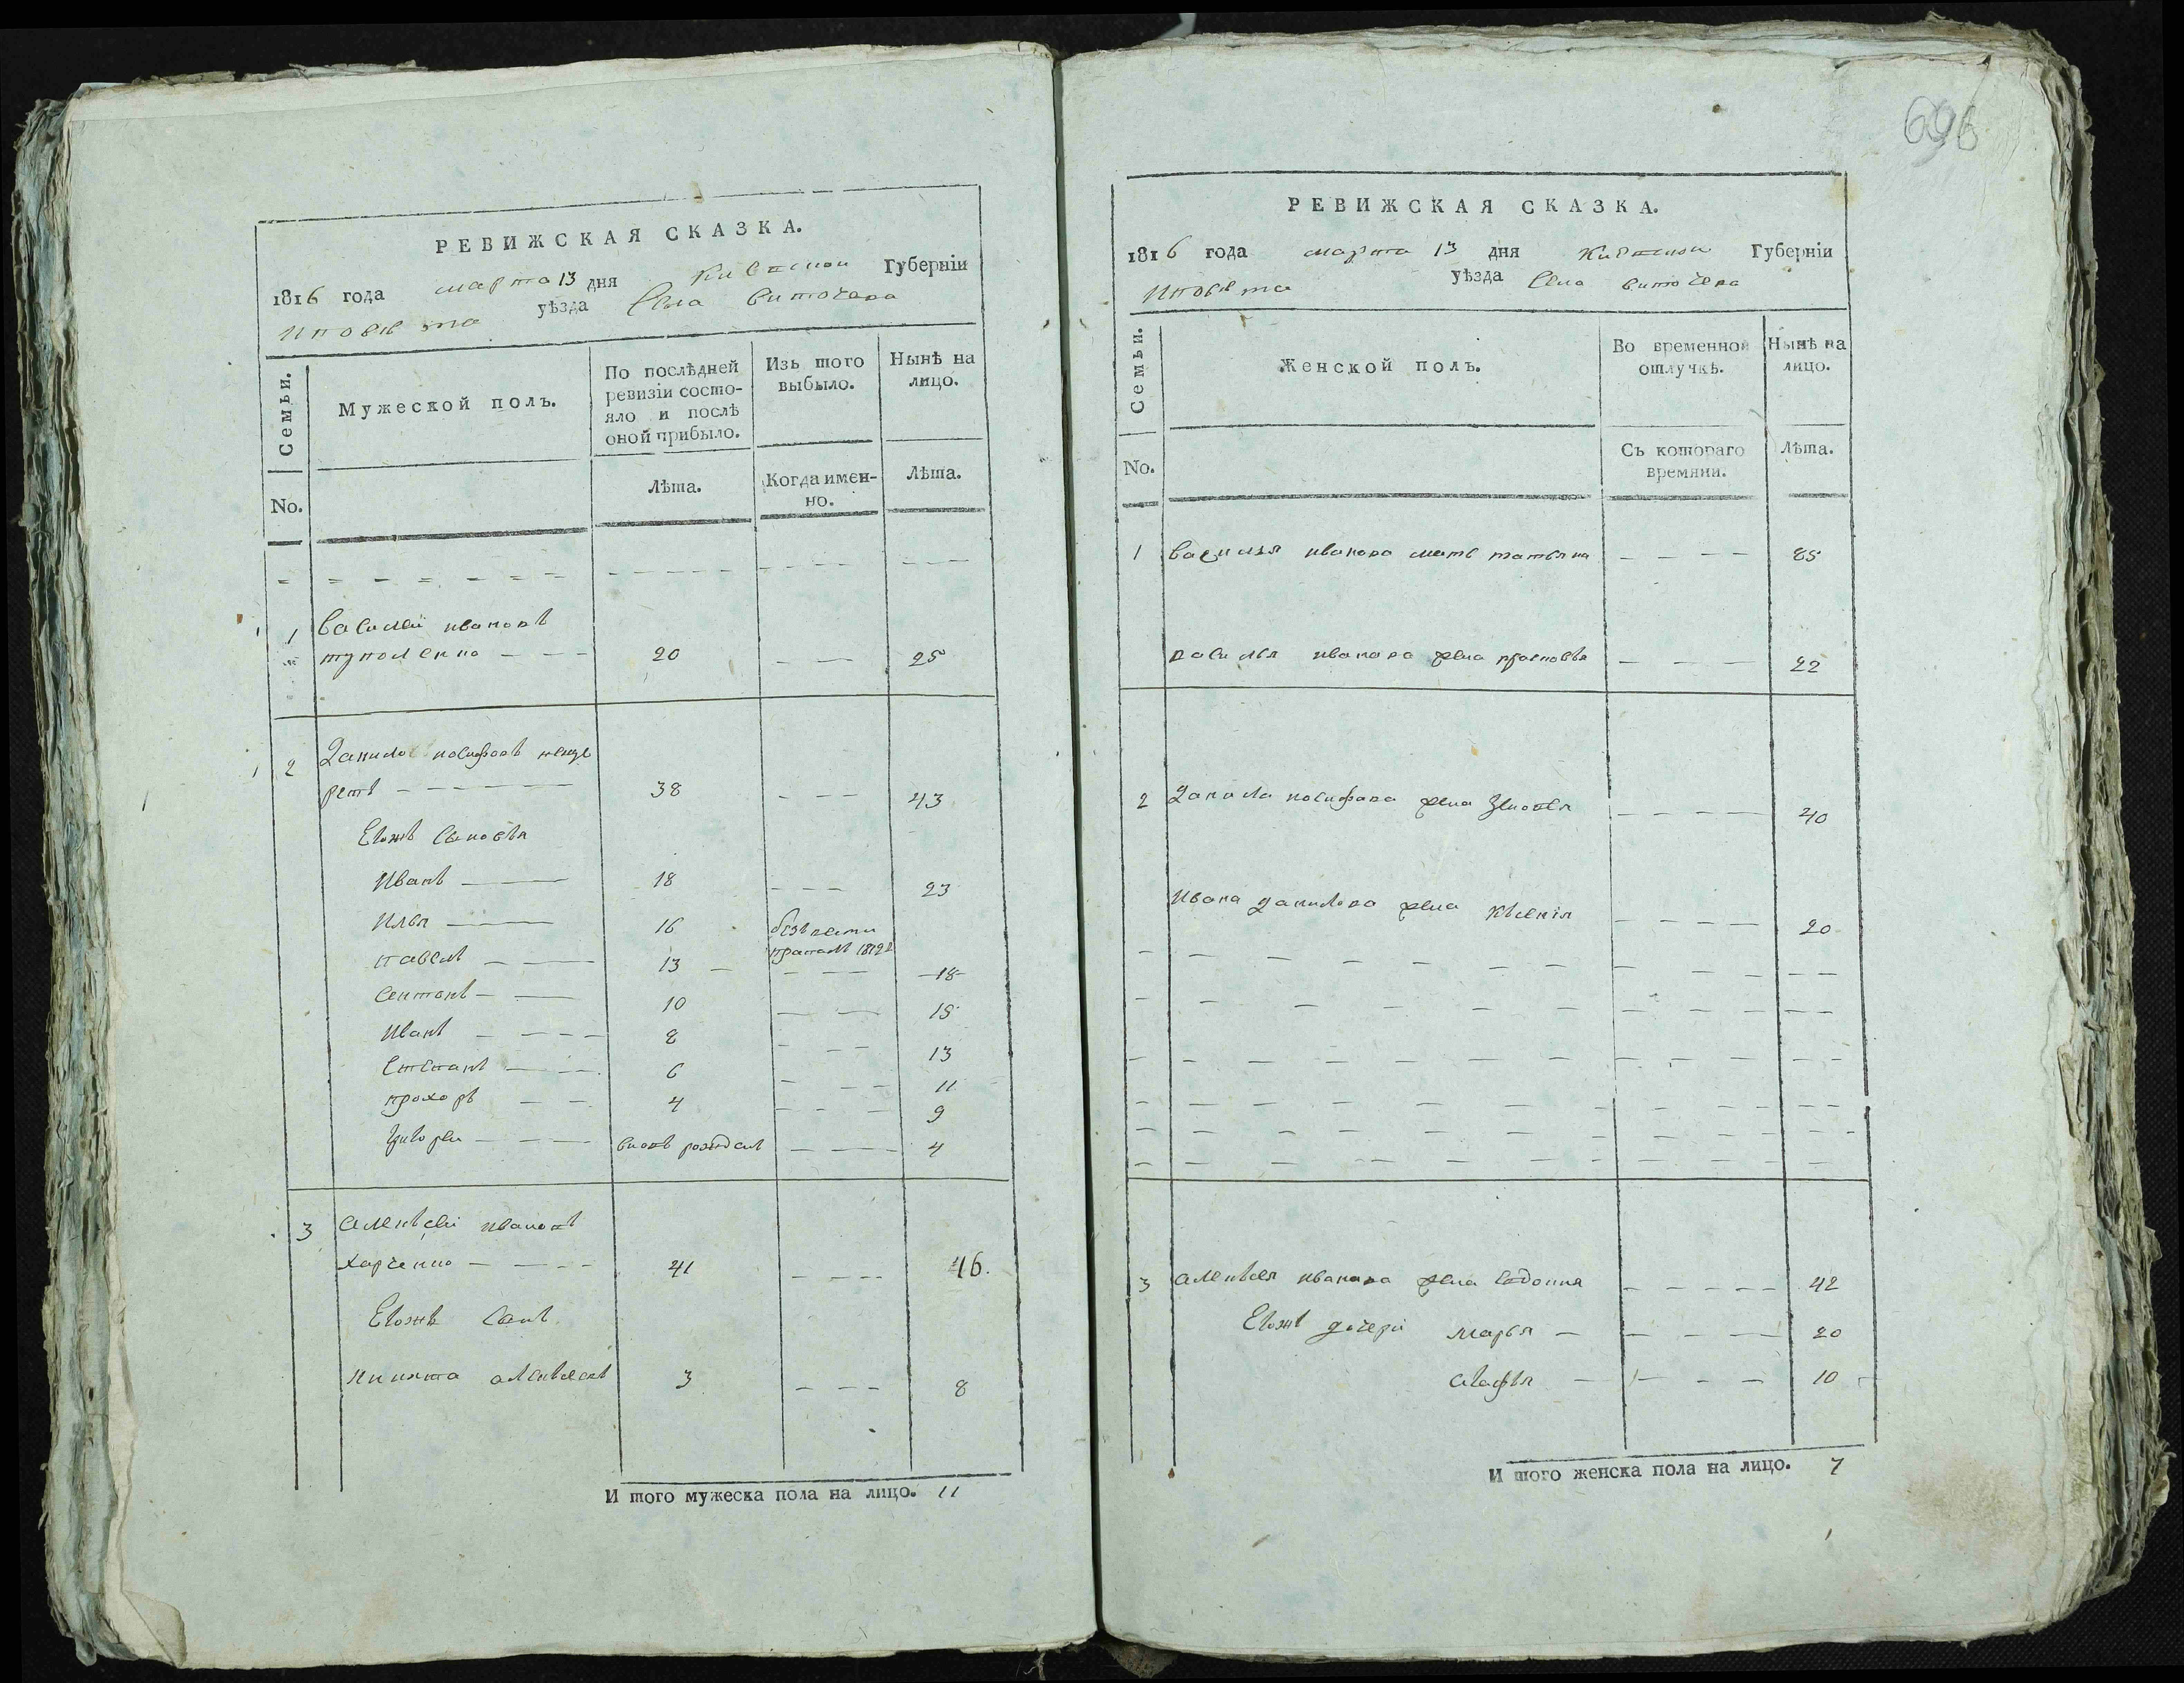 696
РЕВИЖСКАЯ СКАЗКА.
1816 года марта 13 дня Киевской Губерніи
уѣзда Села витачева
Мужеской полъ.
Семьи.
No.
По послѣдней
ревизіи состо-
яло и послѣ
оной прибыло.
Лѣта.
Изъ того
выбыло.
Когда имен-
но.
Нынѣ на
лицо.
Лѣта.
1 василей ивановъ
туполенко 20 25
2 Данило иосифовъ
38 43
Евожъ сыновья
Иванъ 18 23
Илья 16 безвести
пропалъ 1812
павелъ 13 18
антонъ 10 15
Иванъ 8 13
Степанъ 6 11
прохоръ 4 9
григорей вновь рожденъ 4
3 алексѣй ивановъ
харченко 41 46.
Евожъ сынъ
никита алексеевъ 3 8
И того мужеска пола на лицо. 11
РЕВИЖСКАЯ СКАЗКА.
1816 года марта 13 дня Киевской Губерніи
уѣзда Села витачева
Семьи.
No.
Женской полъ.
Во временной
отлучкѣ.
Съ котораго
времяни.
Нынѣ на
лицо.
Лѣта.
1 василія иванова мать татьяна 85
василья иванова жена прасковья 22
2 Данила иосифова жена Зиновья 40
Ивана данилова жена ксенія 20
3 алексея иванова жена евдокия 42
Евожъ дочери марья 20
агафья 10
И того женска пола на лицо. 7